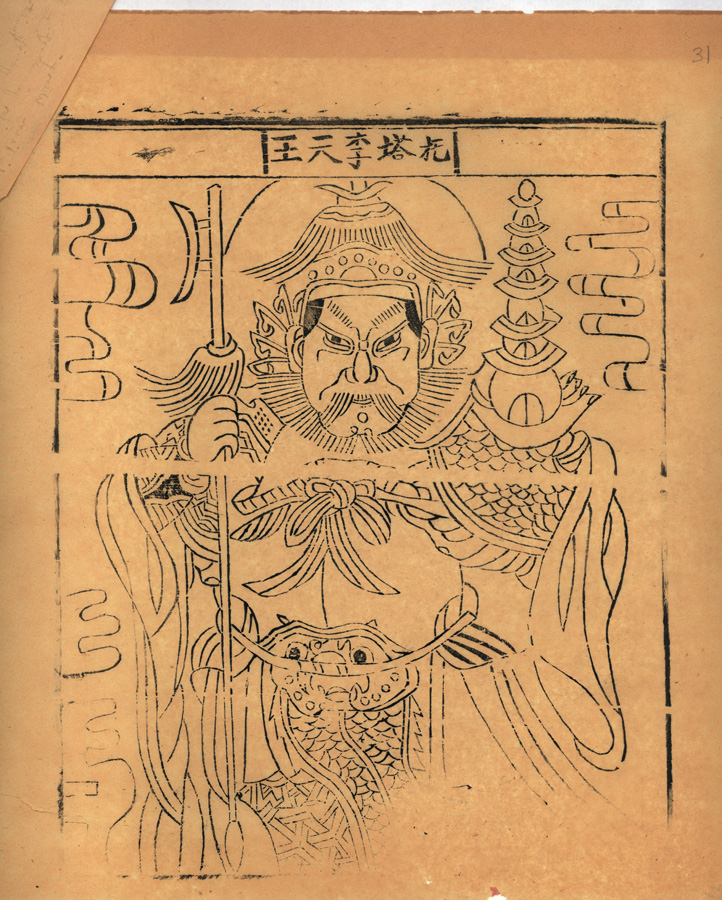 31
托塔李天王